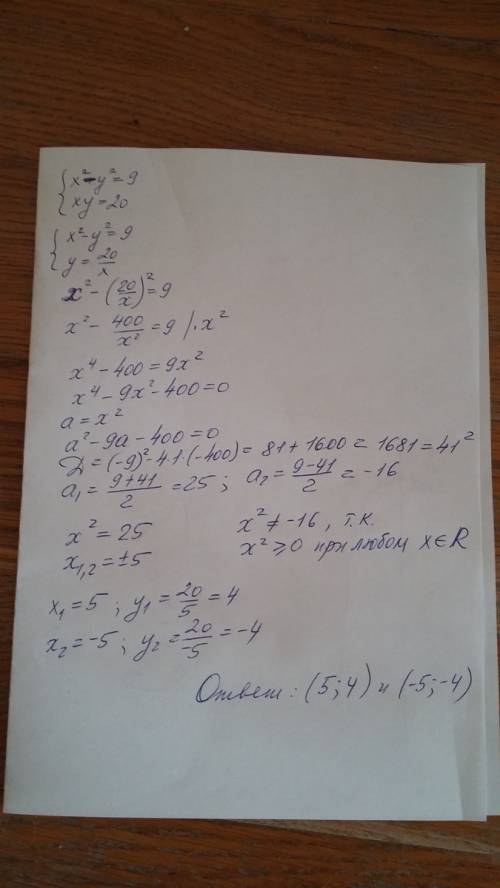 { x² - y² = 9
xy = 20
{ x² - y² = 9
y = 20/x
x² - (20/x)² = 9
x² - 400/x² = 9 /·x²
x⁴ - 400 = 9x²
x⁴ - 9x² - 400 = 0
a = x²
a² - 9a - 400 = 0
D = (-9)² - 4·1·(-400) = 81 + 1600 = 1681 = 41²
a₁ = (9+41)/2 = 25 ; a₂ = (9-41)/2 = -16
x² = 25 x² ≠ -16 , т.к.
x₁,₂ = ±5 x² ≥ 0 при любом x ∈ R
x₁ = 5 ; y₁ = 20/5 = 4
x₂ = -5 ; y₂ = 20/-5 = -4
Ответ: (5;4) и (-5;-4)